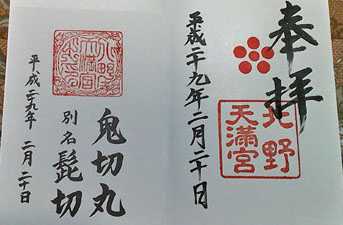 奉拝
北野
天満宮
平成二十九年二月二十日
鬼切丸
別名 髭切
平成二九年 二月二十日